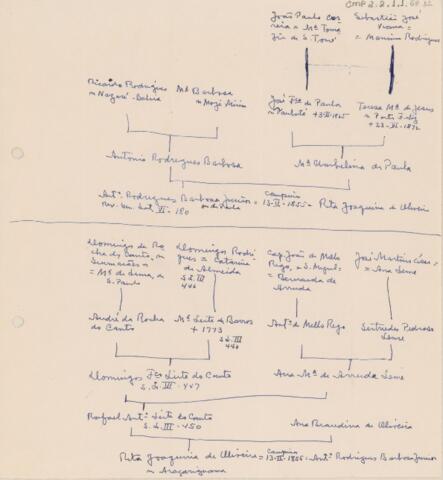 CMP 2.2.1.1.
João Paulo Cor
reia = Mª
gia de S. Tomé
Sebastião José
Viana =
= Maria Rodrigues
Ricardo Rodrigues
n Nazaré - Bahia
Mª Barbosa
n Mogi Mirim
José Fco de Paula
Teresa Mª de Jesus
n Porto Feliz
+ 23-VI-1872
Antonio Rodrigues Barbosa
Mª Umbelina de Paula
Campinas
Antº. Rodrigues Barbosa Junior = 13-II-1855 = Rita Joaquina de Oliveira
VI - 180
Domingos da Ro
cha do Canto, n
= Mª de Lima, n
S. Paulo
Domingos Rodri
gues = Catarina
de Almeida
S.L. III
446
Cap João de Mello
Rego, n S. Miguel
= Bernarda de
Arruda
José Martins César =
= Ana Leme
André da Rocha
do Canto
Mª Leite de Barros
+ 1773
S.L. III
446
Antº de Mello Rego
Gertrudes Pedroso
Leme
Domingos Fco Leite do Canto
S.L. III - 447
Ana Mª de Arruda Leme
Rafael Antº Leite do Canto
S.L. III - 450
Ana Brandina de Oliveira
Campinas
Rita Joaquina de Oliveira = 13-II-1855 = Antº Rodrigues Barbosa Junior
n Araçariguama